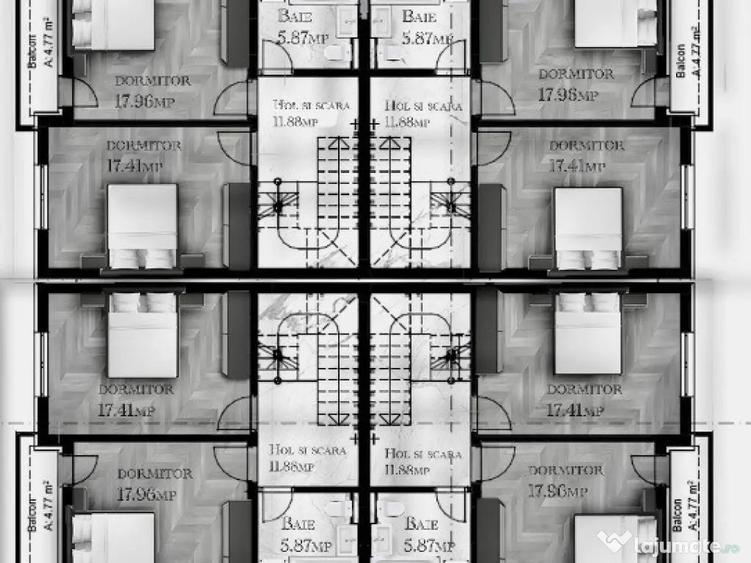 BAIE
5.87MP
BAIE
5.87MP
Balcon
A: 4.77 m²
Balcon
A: 4.77 m²
DORMITOR
17.96MP
HOL SI SCARA
11.88MP
HOL SI SCARA
11.88MP
DORMITOR
17.96MP
DORMITOR
17.41MP
DORMITOR
17.41MP
DORMITOR
17.41MP
DORMITOR
17.41MP
HOL SI SCARA
11.88MP
HOL SI SCARA
11.88MP
DORMITOR
17.96MP
DORMITOR
17.96MP
Balcon
A: 4.77 m²
Balcon
A: 4.77 m²
BAIE
5.87MP
BAIE
5.87MP
lajumate.ro